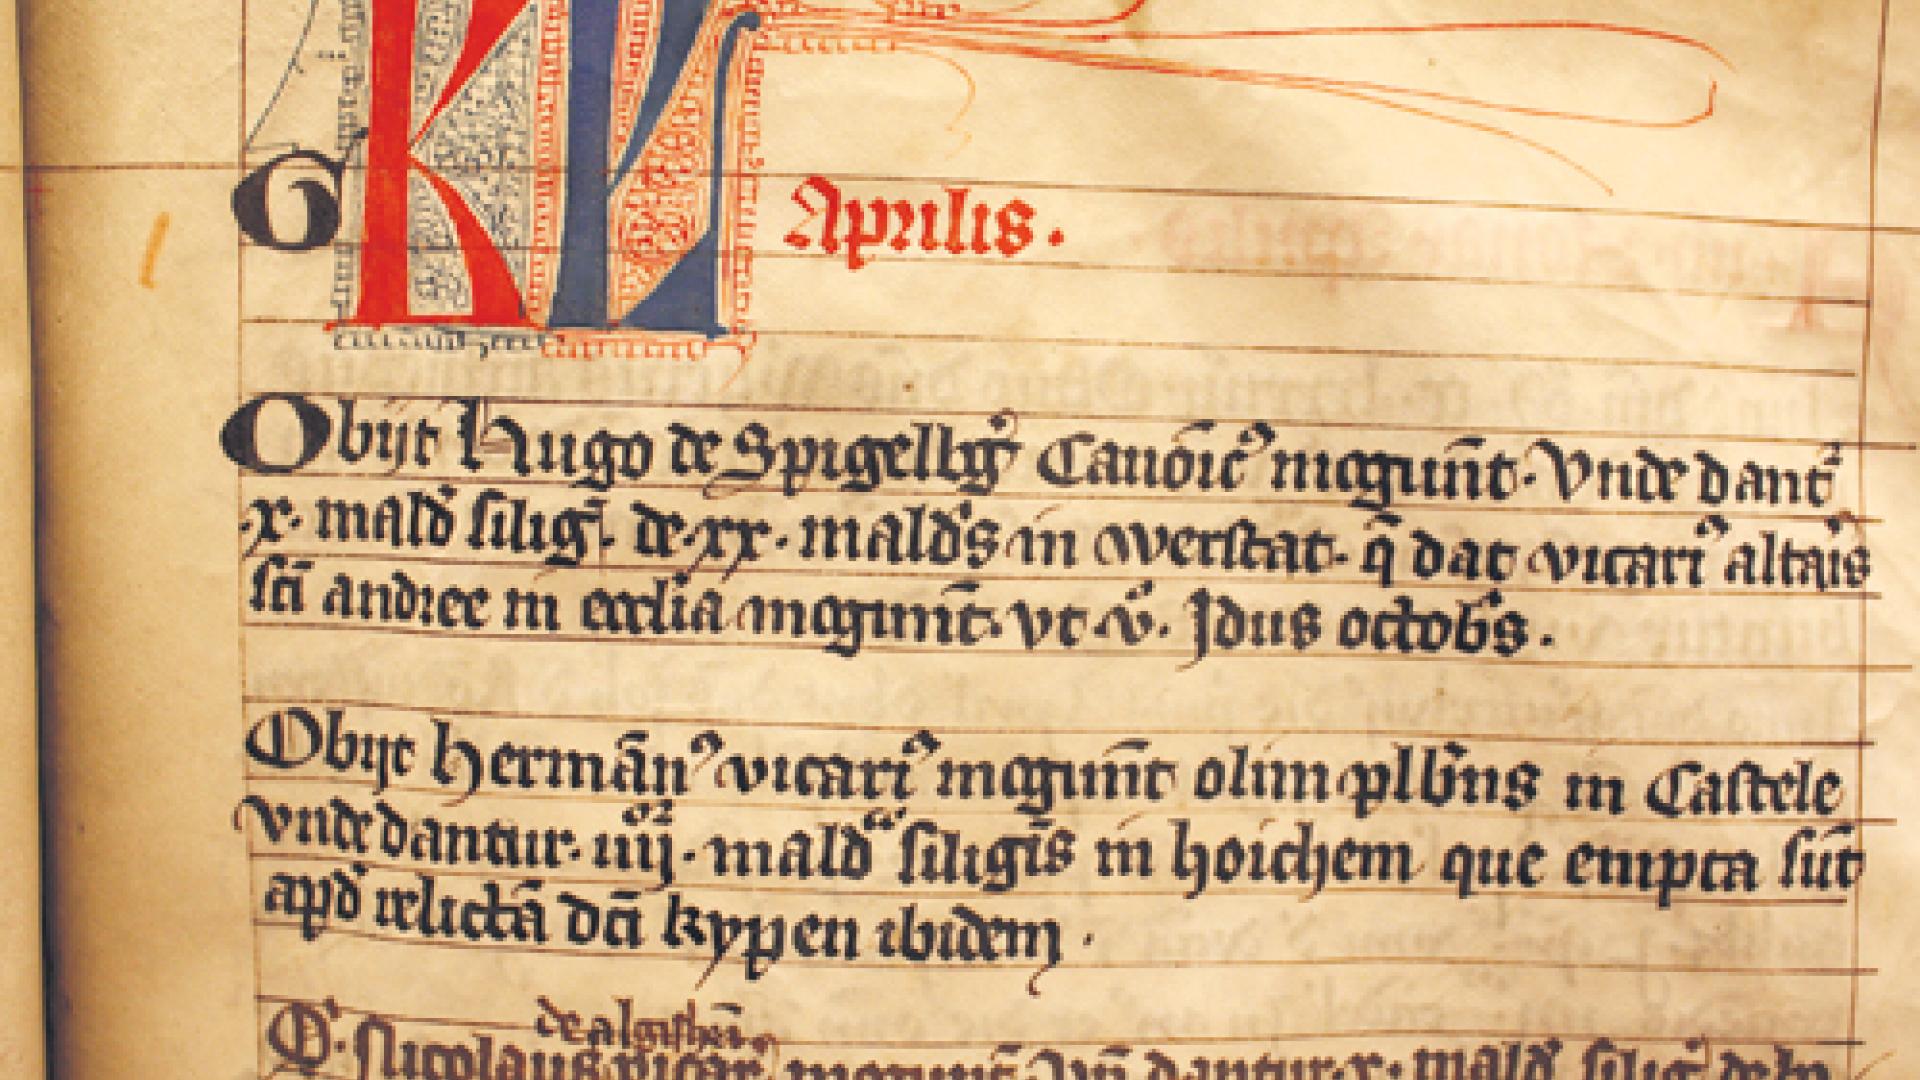 G KL Aprilis.
Obijt Hugo de Spigelbg̃ Canōic᷒ mogunt̄. Vnde dant᷑
.x. mald̄ siliḡ. de .xx. mald̄s in Werstat. q̄ dat vicari᷒ altaīs
sc̄i andree in eccl̄ia mogunt̄. vt .v̄. Jdus octob̄s.
Obijt herman̄᷒ vicari᷒ mogunt̄ olim pleb̄ns in Castele
vnde dantur. iiij. mald̄ siligīs in hoichem que empta sūt
apd̄ relictā dc̄i kyppen ibidem.
de algishei
O. Nicolaus vicar mogunt̄. Vn̄ dantur. x. mald̄ siliḡ